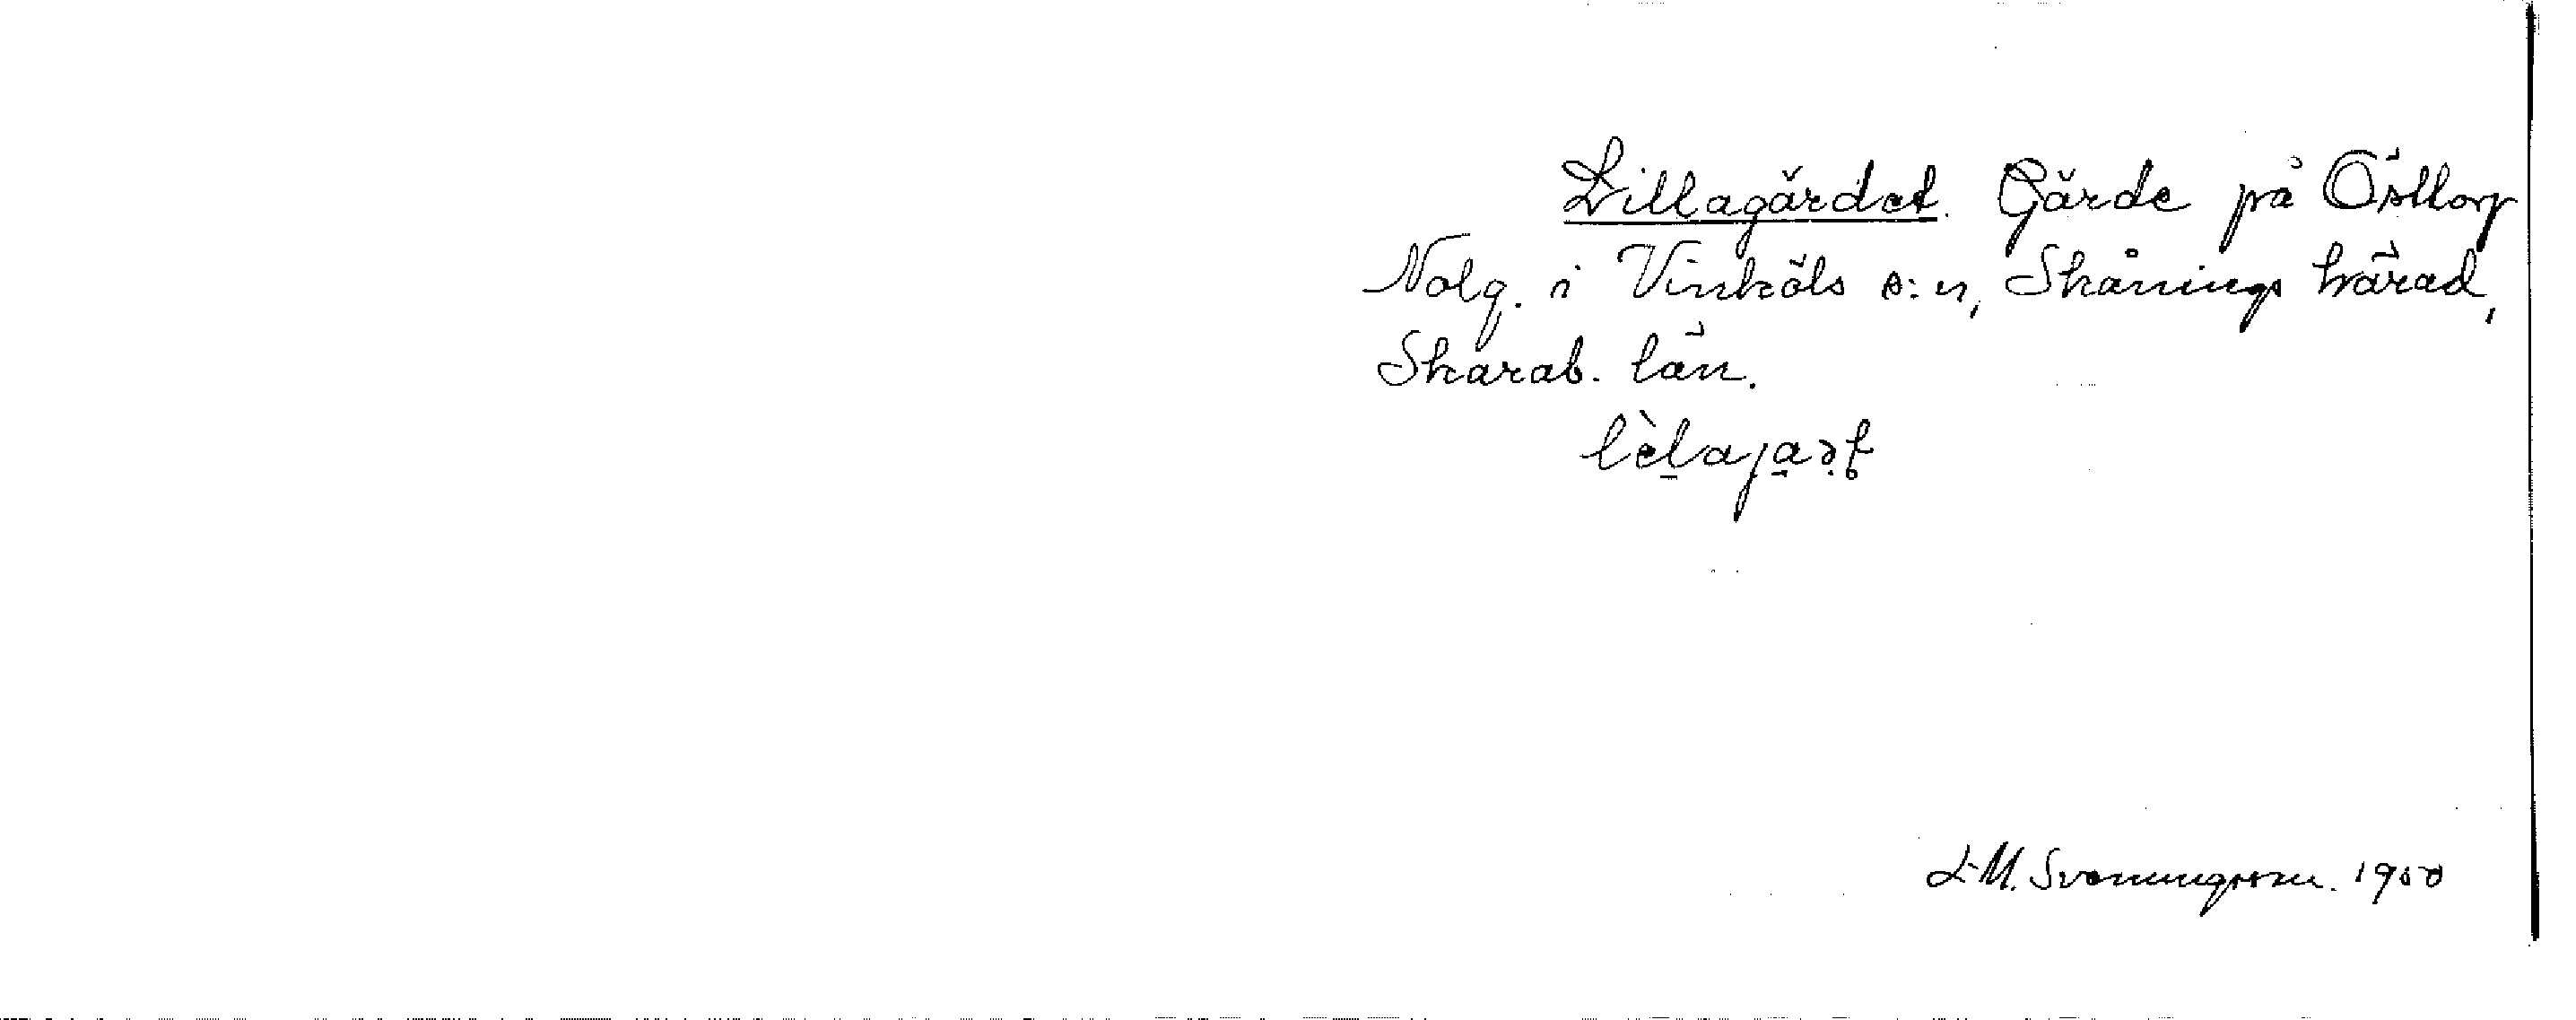 Lillagärdet. Gärde på Östtorp
Nolg. i Vinköls s:n, Skånings härad,
Skarab. län.
L-M. Svenungsson. 1950